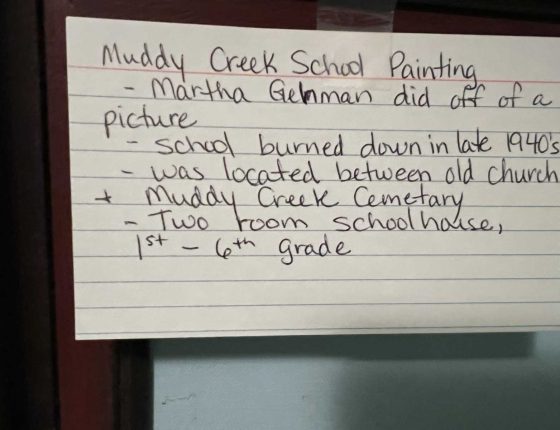 Muddy Creek School Painting
- Martha Gehman did off of a
picture
- school burned down in late 1940's
- was located between old church
+ Muddy Creek Cemetary
- Two room schoolhouse,
1st - 6th grade